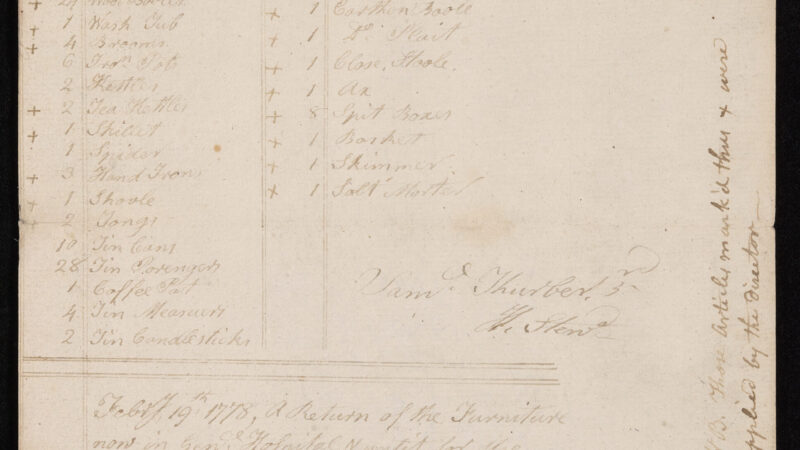 + 24
+ 1 Wash Tub
+ 4 Brooms
6 Iron Pots
2 Kettles
+ 2 Tea Kettles
+ 1 Skillet
1 Spider
+ 3 Hand Irons
+ 1 Shovle
2 Tongs
10 Tin Cans
28 Tin Porengers
1 Coffee Pot
4 Tin Measuers
2 Tin Candlesticks
+ 1 Earthen Boole
+ 1 Do. Plait
+ 1 Close Stoole.
+ 1 Ax
+ 8 Spit Boxes
+ 1 Basket
+ 1 Skimmer
+ 1 Salt Morter
Samd. Thurber, 3rd
H. Stewd
Feby 19th 1778, A Return of the Furniture
now in Genl. Hospital
NB. Those Articles mark'd thus + were
supplied by the director